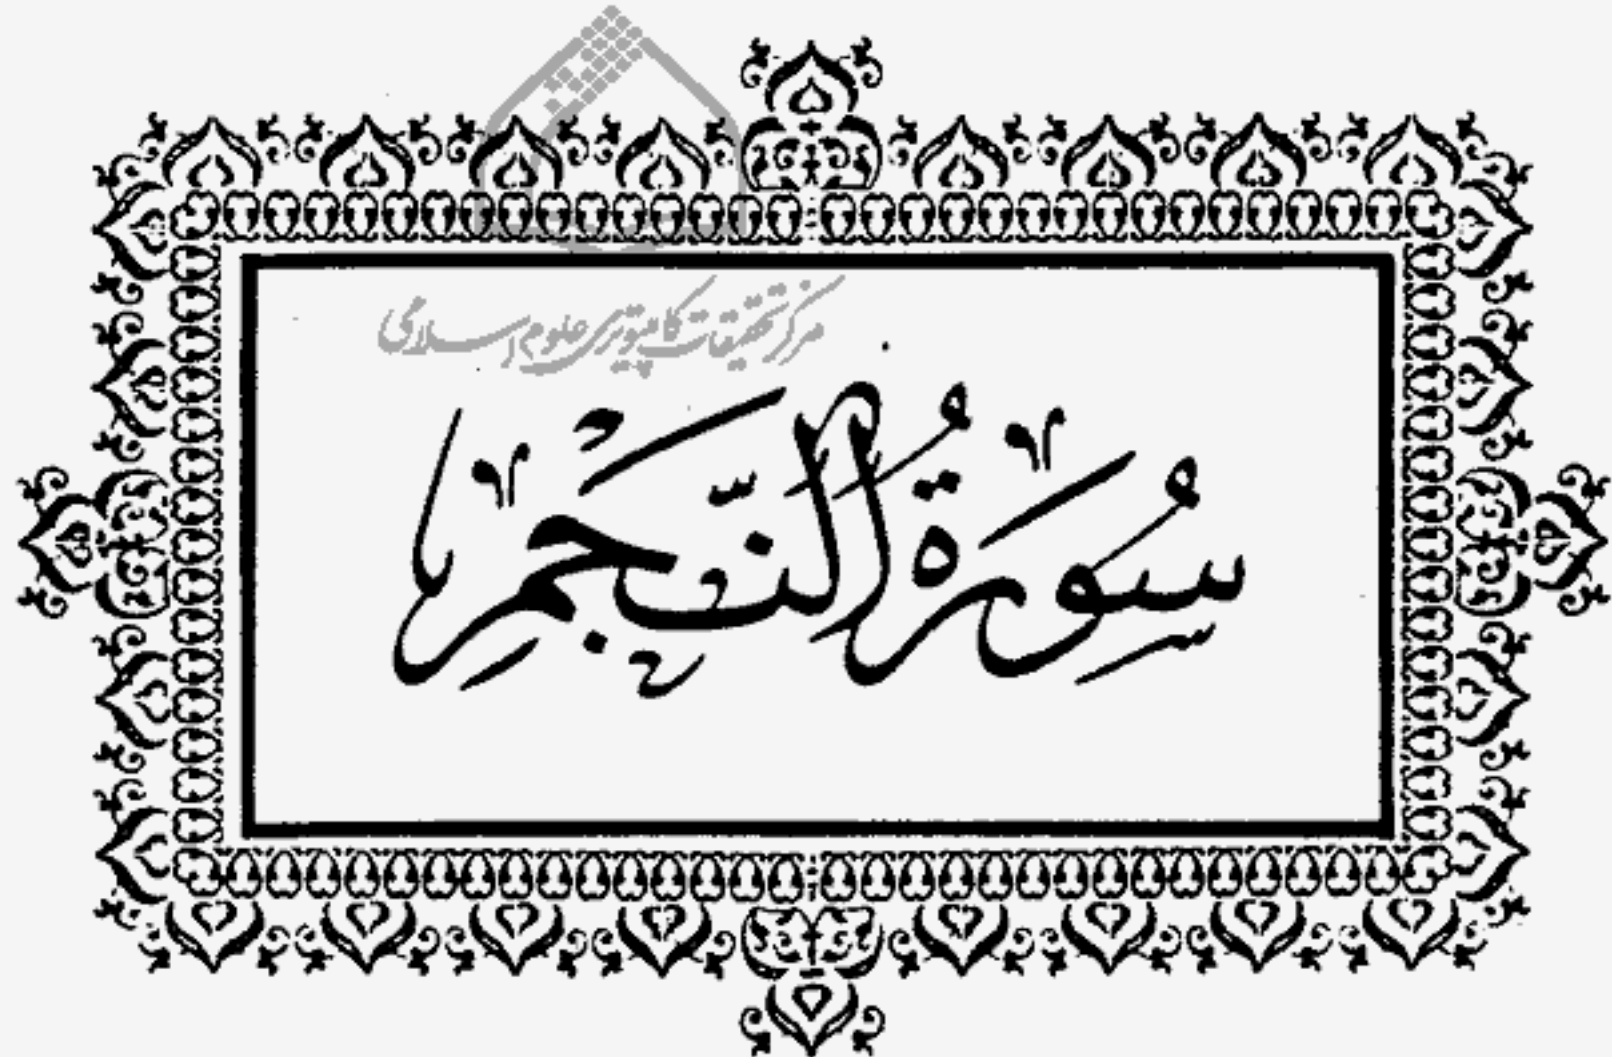 مرکز تحقیقات کامپیوتری علوم اسلامی
سُورَةُ النَّجمِ